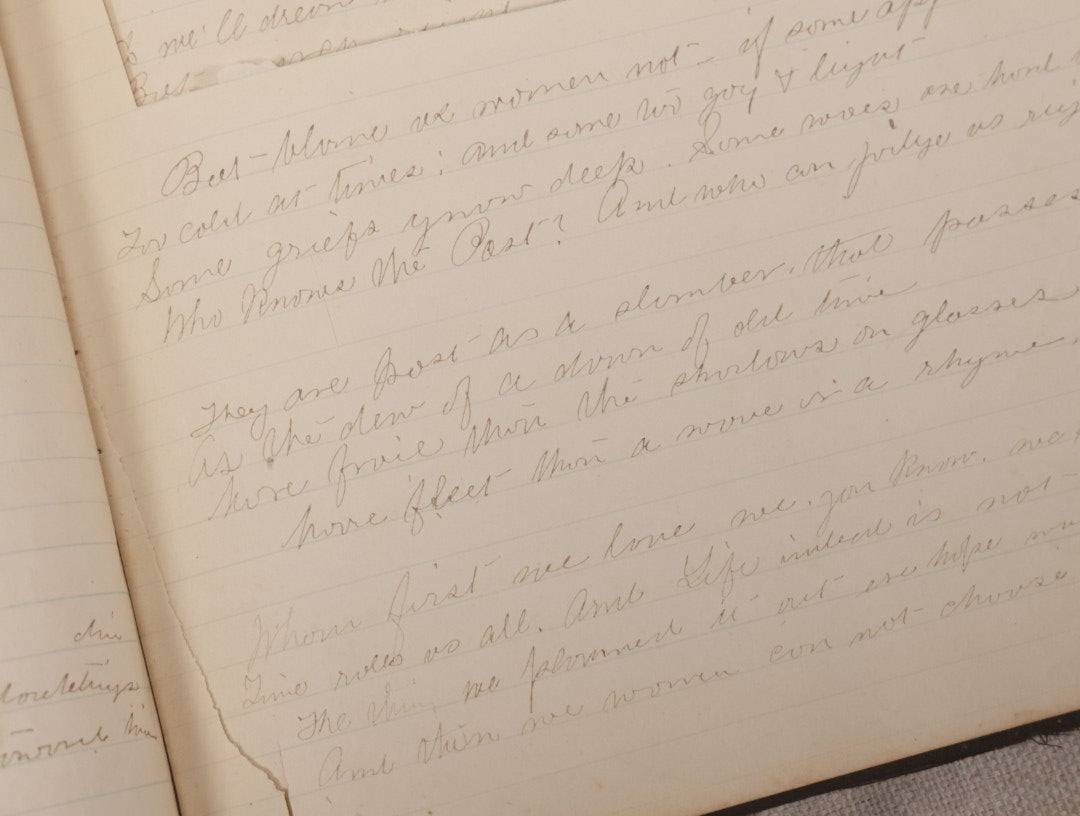 & we'll dream
But
But – blame us women not – if some app
Too cold at times; and some too gay & light
Some griefs gnow deep. Some woes are hard
Who knows the Past? And who can judge us
They are past as a slumber, that passes
As the dew of a dawn of old time
More fraie than the shadows on glasses
More fleet than a wave or a rhyme.
Whom first we love we, you know,
Time rules us all. And Life indeed is not –
The thing we planned it out ere hope
And then we women can not choose